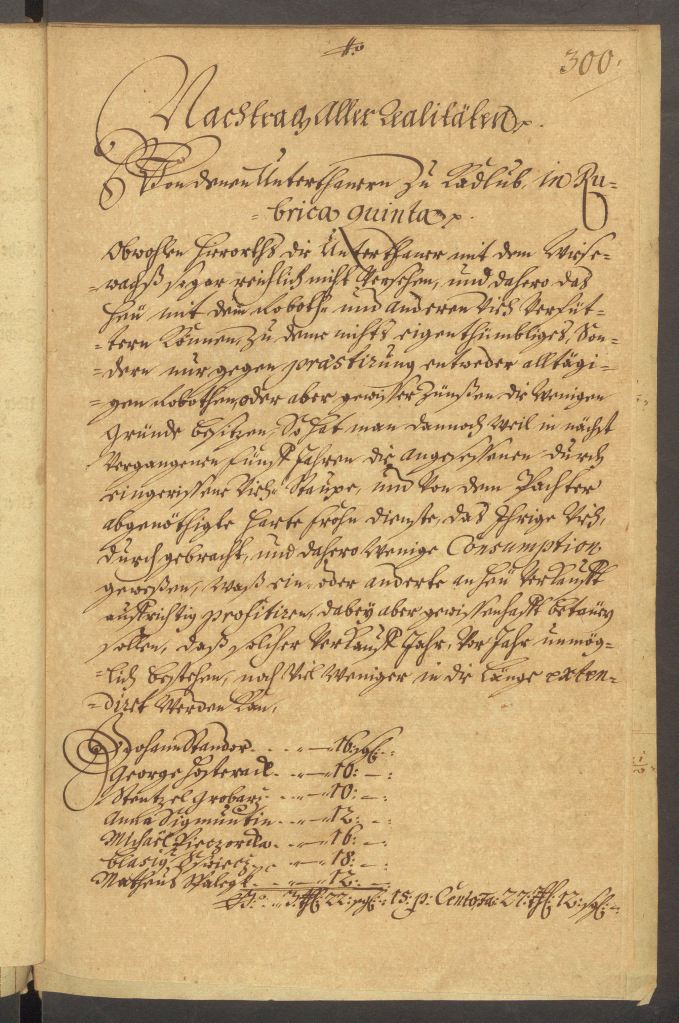 300.
Nachtrag Aller Realitäten
Von denen Unterthanern Zu Radlub, in Ru-
brica quinta
Obwohlen hierorths die Unterthaner mit dem Wiese-
wachß so gar reichlich nicht Versehen, und dahero das
Heu mit dem Roboth und anderen Vieh Verfüt-
tern Können, zu deme nichts eigenthümbliges, Son-
dern nur gegen praestirung entweder alltägi-
gen Robothen, oder aber gewisser Zünßen die Wenigen
Gründe besitzen, So hat man dannoch weil in nächst
Vergangenen Fünff Jahren die angesessenen durch
eingerissene Vieh Staupe, und Von dem Pachter
abgenöthigte harte Frohn dienste, das Ihrige Vieh,
durchgebracht, und dahero Wenige Consumption
gewesen, Waß ein oder anderte an Heu Verkaufft
auffrichtig profitiren, dabey aber gewissenhafft
sollen, daß solcher Verkauff Jahr Vor Jahr unmög-
lich bestehen, noch Viel Weniger in die Länge exten-
diret Werden Kan,
Johann Standor 16: sgl:
George 10:
Stentzel Grobarz 10:
Anna Sigmuntin 12:
Michael Pieczorka 16:
Blasig 18:
Matheus 12:
22: sgl: 15: p: Cento 27: 12: sgl: